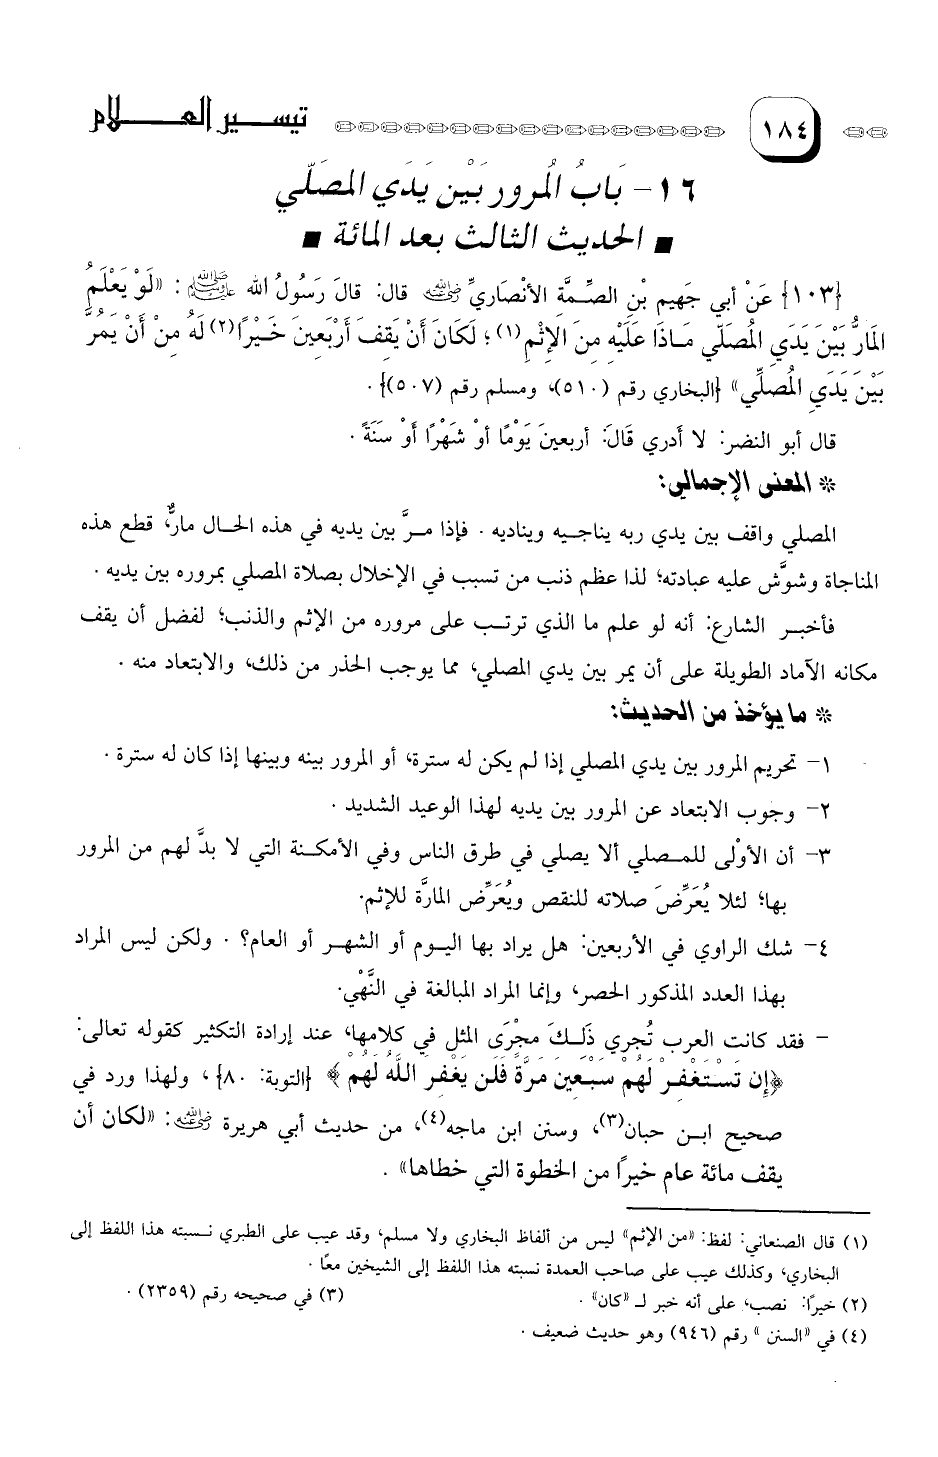 ١٨٤
تيسير العلام
١٦- بَابُ المُرور بَيْن يَدَي المصَلّي
■ الحديث الثالث بعد المائة ■
{١٠٣} عَنْ أبي جَهيم بْنِ الصِّمَّة الأنْصاريِّ رضي الله عنه قال: قالَ رَسُولُ الله ﷺ: «لَوْ يَعْلَمُ
المَارُّ بَيْنَ يَدَيِ المُصَلّي مَاذَا عَلَيْه منَ الإثْم(١)؛ لَكَانَ أَنْ يَقفَ أرْبَعينَ خَيْرًا(٢) لَهُ منْ أَنْ يَمُرَّ
بَيْنَ يَدَيِ المُصلِّي» {البخاري رقم (٥١٠)، ومسلم رقم (٥٠٧)}.
قال أبو النضر: لا أدري قَالَ: أربعينَ يَوْمًا أوْ شَهْرًا أوْ سَنَةً.
* المعنى الإجمالي:
المصلي واقف بين يدي ربه يناجيه ويناديه. فإذا مرَّ بين يديه في هذه الحال مارٌّ، قطع هذه
المناجاة وشوَّش عليه عبادته؛ لذا عظم ذنب من تسبب في الإخلال بصلاة المصلي بمروره بين يديه.
فأخبر الشارع: أنه لو علم ما الذي ترتب على مروره من الإثم والذنب؛ لفضل أن يقف
مكانه الآماد الطويلة على أن يمر بين يدي المصلي، مما يوجب الحذر من ذلك، والابتعاد منه.
* ما يؤخذ من الحديث:
١- تحريم المرور بين يدي المصلي إذا لم يكن له سترة، أو المرور بينه وبينها إذا كان له سترة.
٢- وجوب الابتعاد عن المرور بين يديه لهذا الوعيد الشديد.
٣- أن الأوْلى للمصلي ألا يصلي في طرق الناس وفي الأمكنة التي لا بدَّ لهم من المرور
بها؛ لئلا يُعَرِّضَ صلاته للنقص ويُعَرِّض المارَّة للإثم.
٤- شك الراوي في الأربعين: هل يراد بها اليوم أو الشهر أو العام؟. ولكن ليس المراد
بهذا العدد المذكور الحصر، وإنما المراد المبالغة في النَّهْي.
- فقد كانت العرب تُجري ذَلكَ مجْرَى المثل في كلامها، عند إرادة التكثير كقوله تعالى:
﴿إن تَسْتَغْفرْ لَهُمْ سَبعينَ مَرَّةً فَلَن يَغْفرَ اللَّهُ لَهُمْ﴾ {التوبة: ٨٠}، ولهذا ورد في
صحيح ابن حبان(٣)، وسنن ابن ماجه(٤)، من حديث أبي هريرة رضي الله عنه: «لكان أن
يقف مائة عام خيرًا من الخطوة التي خطاها».
(١) قال الصنعاني: لفظ: «من الإثم» ليس من ألفاظ البخاري ولا مسلم، وقد عيب على الطبري نسبته هذا اللفظ إلى
البخاري، وكذلك عيب على صاحب العمدة نسبته هذا اللفظ إلى الشيخين معًا.
(٢) خيرًا: نصب، على أنه خبر لـ «كان». (٣) في صحيحه رقم (٢٣٥٩).
(٤) في «السنن» رقم (٩٤٦) وهو حديث ضعيف.